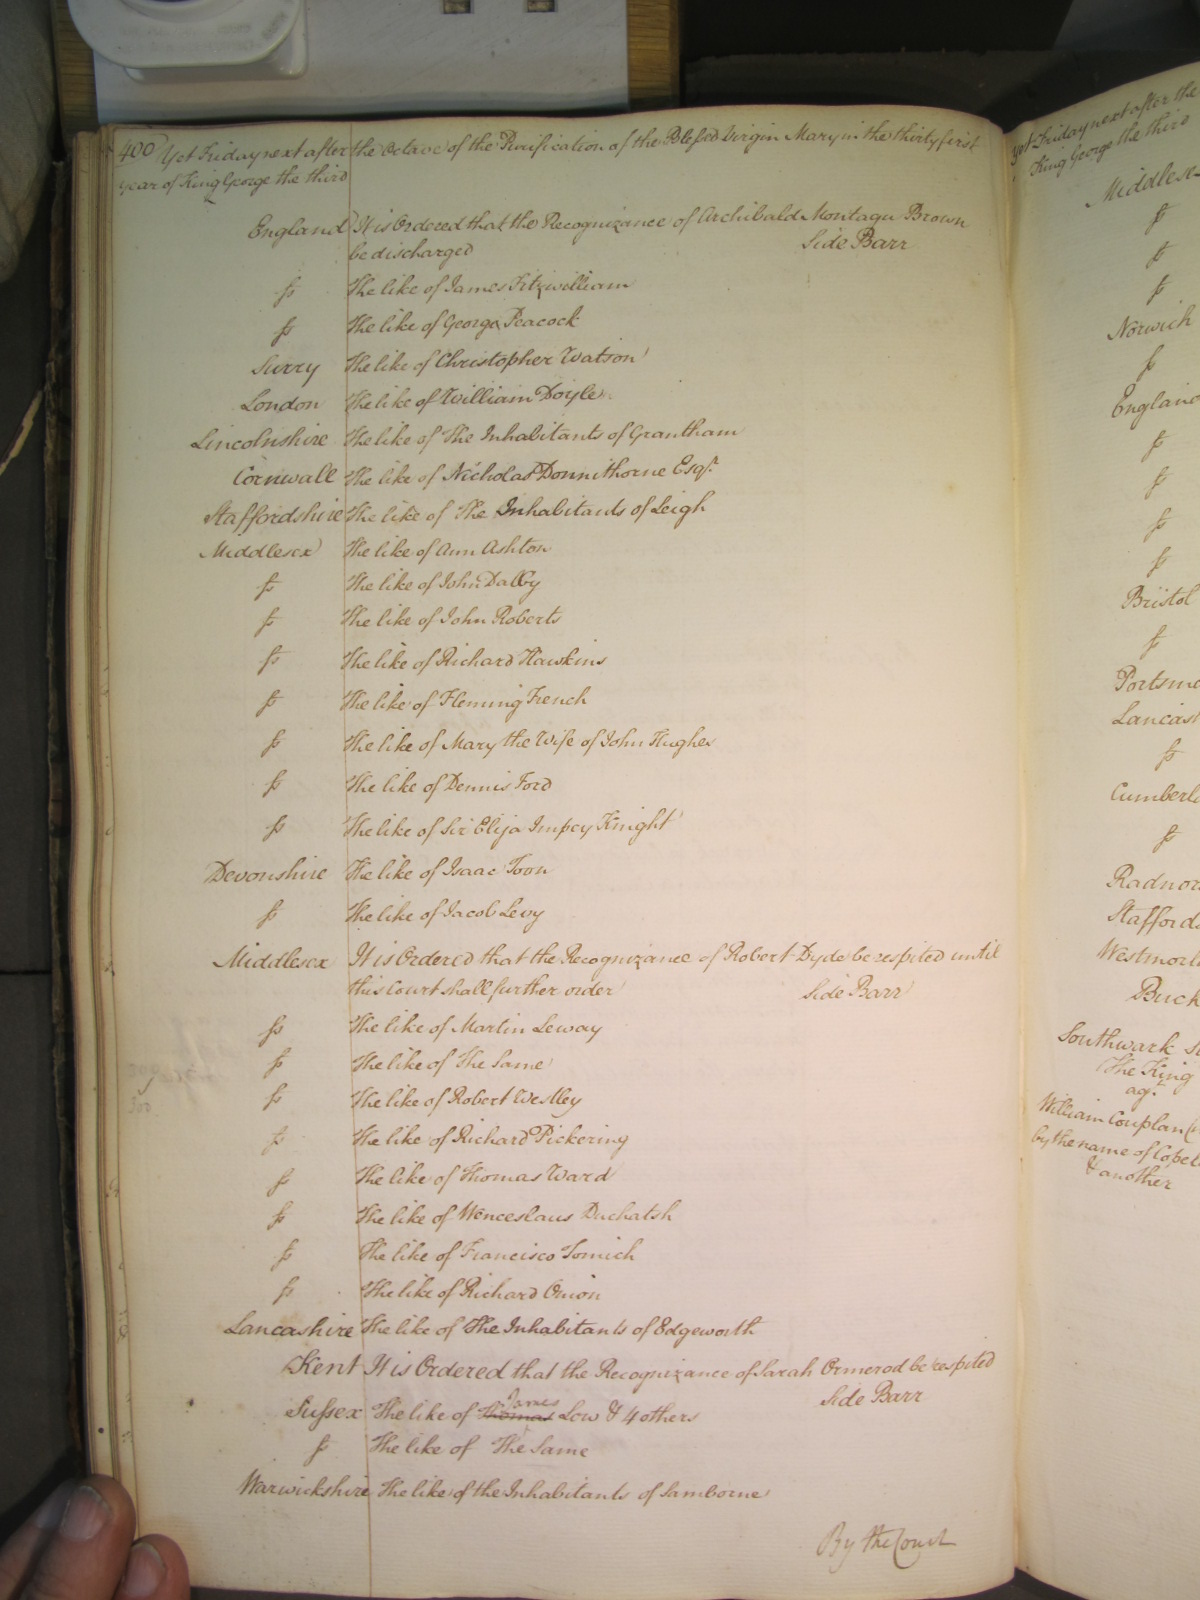 400 Yet Friday next after the Octave of the Purification of the Blessed Virgin Mary in the thirty first
year of King George the third
England It is Ordered that the Recognizance of Archibald Montagu Brown
be discharged Side Barr
fs The like of James Fitzwilliam
fs The like of George Peacock
Surry The like of Christopher Watson
London The like of William Doyle
Lincolnshire The like of The Inhabitants of Grantham
Cornwall The like of Nicholas Donnithorne Esqr.
Staffordshire The like of The Inhabitants of Leigh
Middlesex The like of Ann Ashton
fs The like of John Dalby
fs The like of John Roberts
fs The like of Richard Hawkins
fs The like of Fleming French
fs The like of Mary the Wife of John Hughes
fs The like of Dennis Ford
fs The like of Sir Elija Impey Knight
Devonshire The like of Isaac Toon
fs The like of Jacob Levy
Middlesex It is Ordered that the Recognizance of Robert Dyde be respited until
this Court shall further order Side Barr
fs The like of Martin Leway
fs The like of The Same
fs The like of Robert Weslley
fs The like of Richard Pickering
fs The like of Thomas Ward
fs The like of Wenceslaus Duchatsh
fs The like of Francisco Tomich
fs The like of Richard Onion
Lancashire The like of The Inhabitants of Edgeworth
Kent It is Ordered that the Recognizance of Sarah Ormerod be respited
Side Barr
Sussex The like of Thomas James Low & 4 others
fs The like of The Same
Warwickshire The like of the Inhabitants of Samborne
By the Court
Yet Friday next after the
King George the third
Middlesex
fs
fs
fs
Norwich
fs
England
fs
fs
fs
fs
Bristol
fs
Portsmo
Lancash
fs
Cumberla
fs
Radnor
Stafford
Westmorl
Buck
Southwark
The King
agt.
William Couplan
by the name of Copel
& another